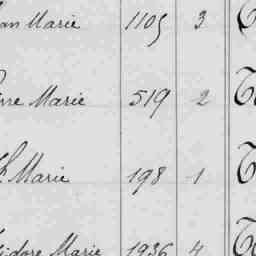 Marie 1105 3
Marie 519 2
Marie 198 1
Isidore Marie 1936 4